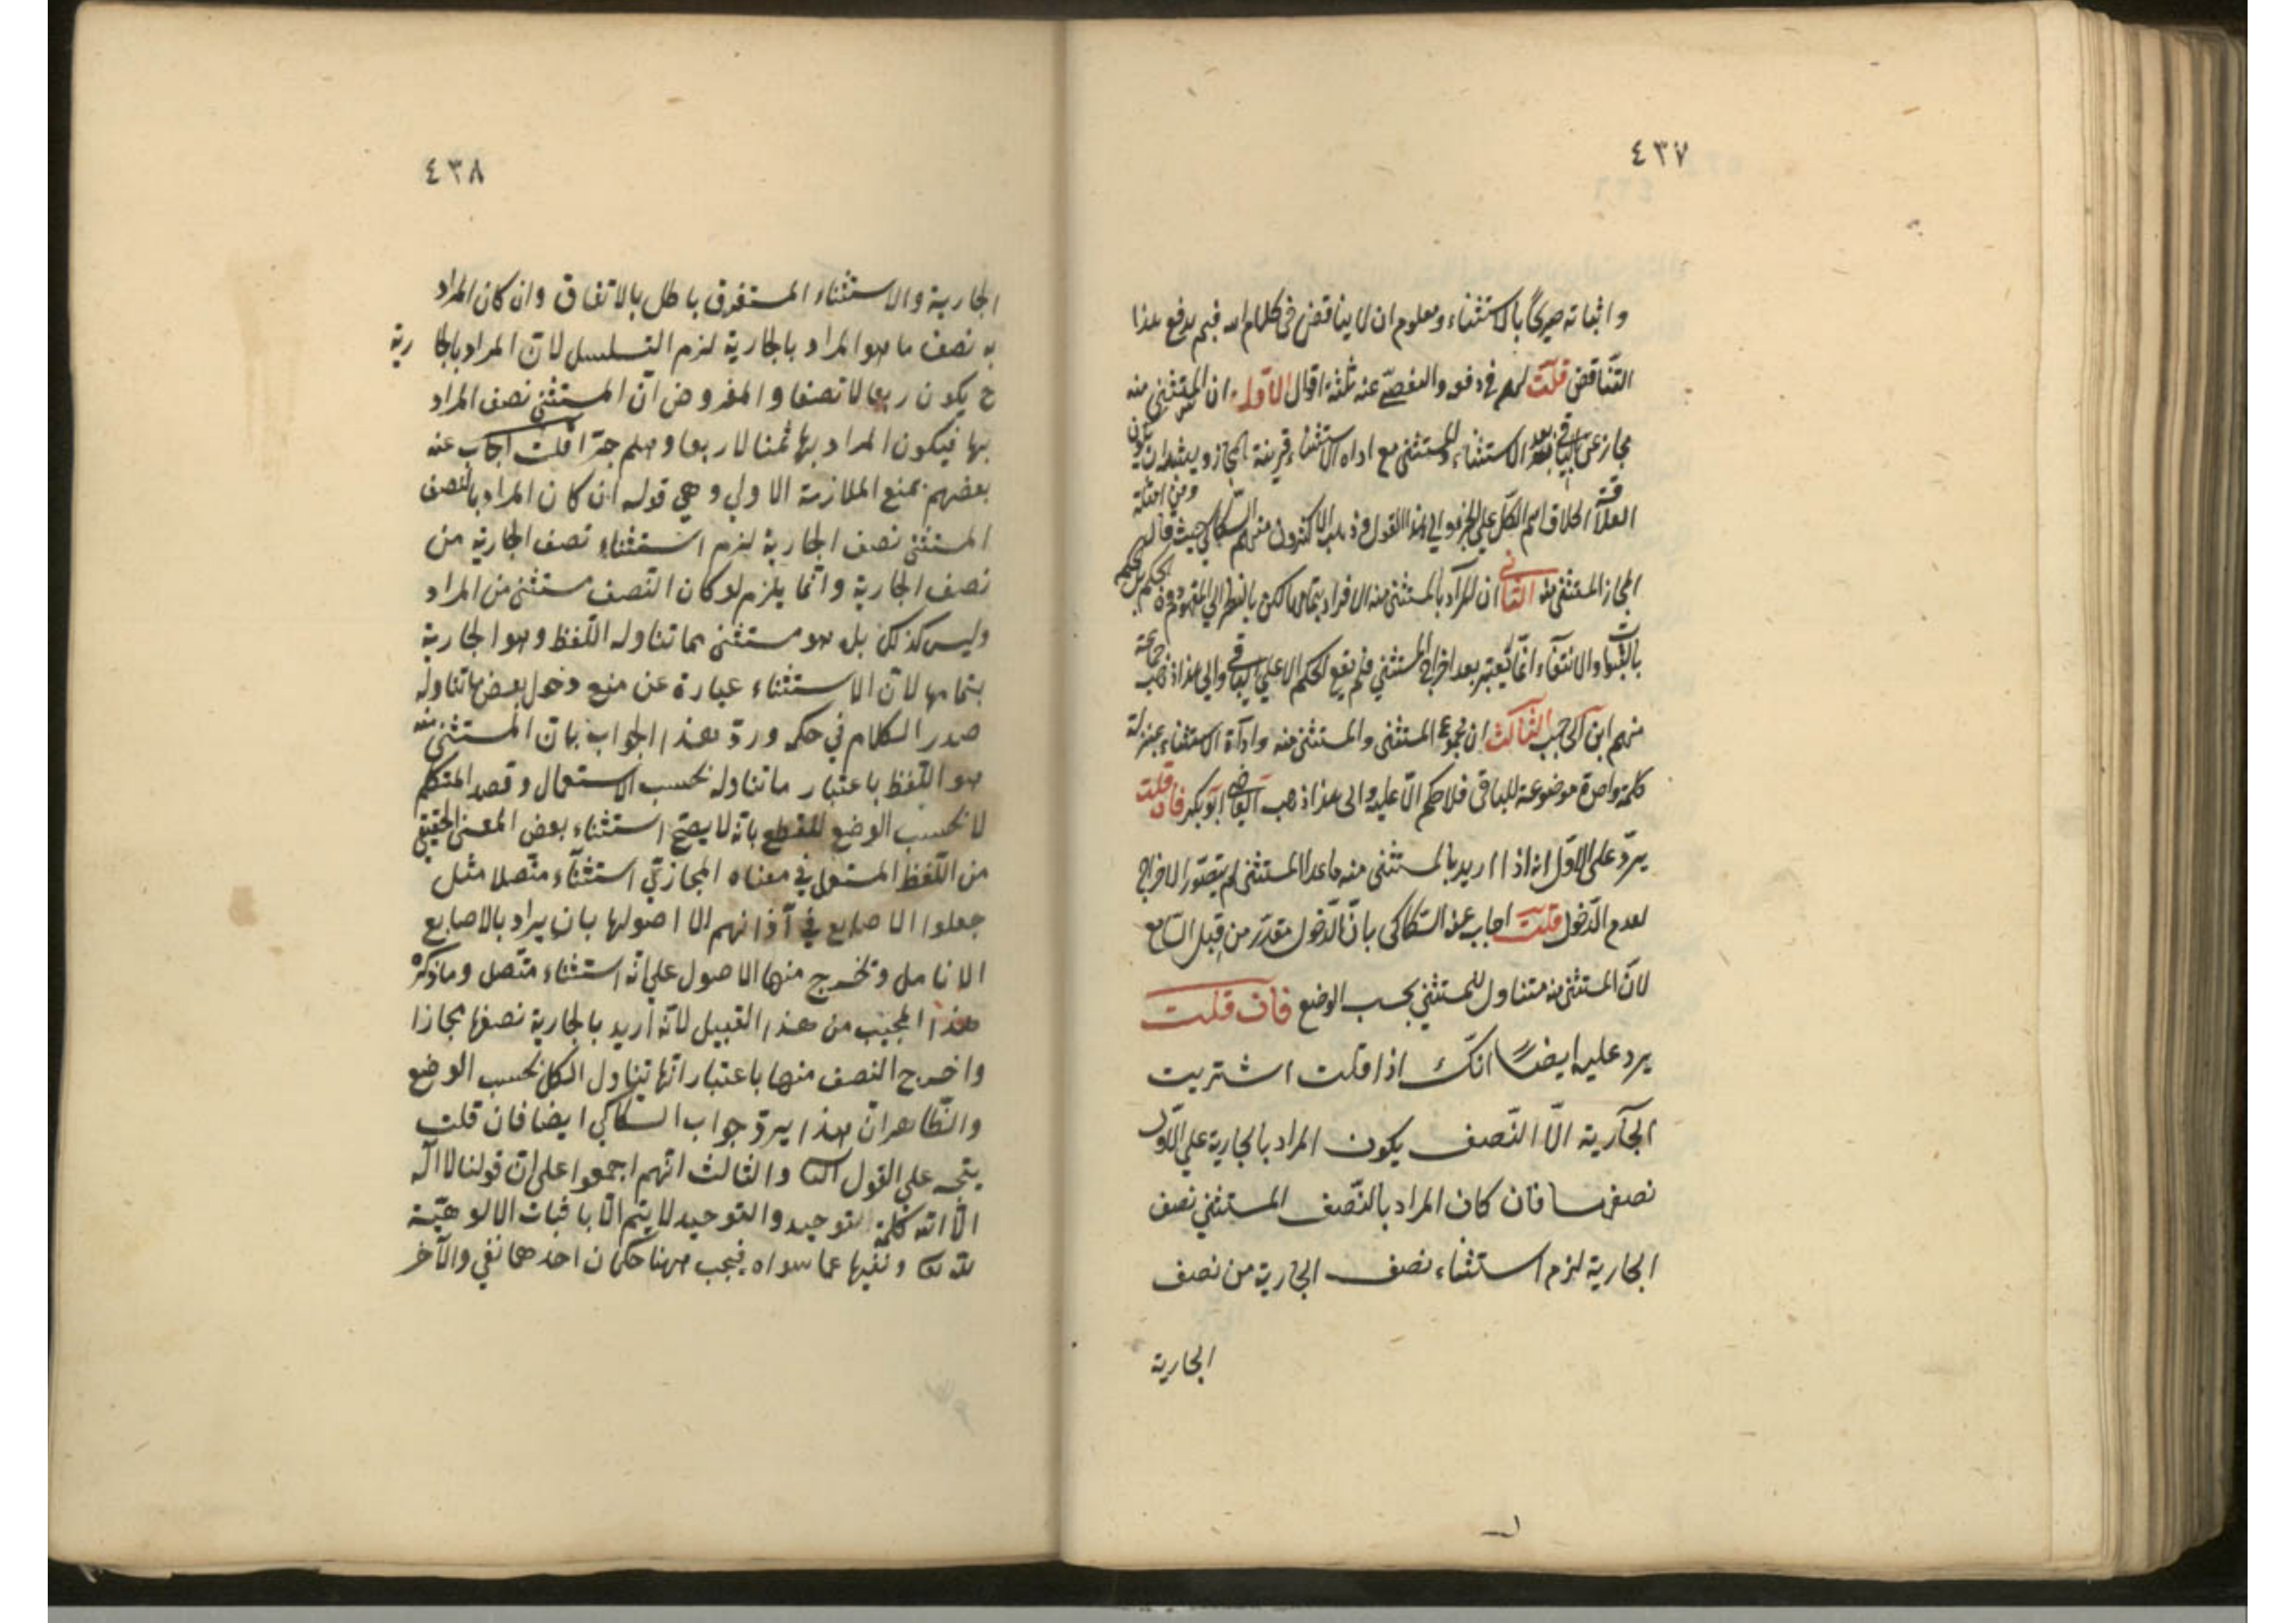 ٤٣٧
واثباته صريحًا بالاستثناء ومعلوم ان لا يناقض في كلام الله فبم يدفع هذا
التّناقض قلت لهم في دفعه والتفصّي عنه ثلثة اقوال الاوّل ان المستثنى منه
مجاز عن الباقي بعد الاستثناء والمستثنى مع اداة الاستثناء قرينة المجاز
العلاقة اطلاق اسم الكلّ على الجزء والى هذا القول ذهب الاكثرون منهم السّكاكي حيث قال
المجاز المستثنى منه الثاني ان المراد بالمستثنى منه الافراد بتمامها لكن بالنظر الى المفهوم
بالثبوت والانتفاء انّما يعتبر بعد اخراج المستثنى فلم يقع الحكم الا على الباقي والى هذا ذهب جماعة
منهم ابن الحاجب الثالث ان مجموع المستثنى والمستثنى منه واداة الاستثناء بمنزلة
كلمة واحدة موضوعة للباقى فلا حكم الّا عليه والى هذا ذهب القاضى ابو بكر فان قلت
يردّ على الاوّل انه اذا اريد بالمستثنى منه ما عدا المستثنى لم يتصوّر الاخراج
لعدم الدّخول قلت اجاب عنه السّكاكى بانّ الدّخول مقدّر من قبل السّامع
لانّ المستثنى منه متناول للمستثنى بحسب الوضع فان قلت
يرد عليه ايضًا انّك اذا قلت اشتريت
الجارية الّا النّصف يكون المراد بالجارية على الاوّل
نصفها فان كان المراد بالنّصف المستثنى نصف
الجارية لزم استثناء نصف الجارية من نصف
الجارية
٤٣٨
الجارية والاستثناء المستغرق باطل بالاتفاق وان كان المراد
به نصف ما هو المراد بالجارية لزم التسلسل لانّ المراد بالجارية
ح يكون ربعا لا نصفا والمفروض انّ المستثنى نصف المراد
بها فيكون المراد بها ثمنا لا ربعا وهلم جرّا قلت اجاب عنه
بعضهم بمنع الملازمة الاولى وهي قوله ان كان المراد بالنصف
المستثنى نصف الجارية لزم استثناء نصف الجارية من
نصف الجارية وانّما يلزم لو كان النّصف مستثنى من المراد
وليس كذلك بل هو مستثنى مما تناوله اللّفظ وهو الجارية
بتمامها لانّ الاستثناء عبارة عن منع دخول بعض ما تناوله
صدر الكلام في حكمه وردّ هذا الجواب بانّ المستثنى منه
هو اللّفظ باعتبار ما تناوله بحسب الاستعمال وقصد المتكلم
لا بحسب الوضع للقطع بانّه لا يصحّ استثناء بعض المعنى الحقيقي
من اللّفظ المستعمل في معناه المجازيّ استثناء متّصلا مثل
جعلوا الاصابع في آذانهم الا اصولها بان يراد بالاصابع
الانامل وتخرج منها الاصول على انّه استثناء متّصل وما ذكره
هذا المجيب من هذا القبيل لانّه اريد بالجارية نصفها مجازا
واخرج النصف منها باعتبار انّها تناول الكل بحسب الوضع
والظّاهر انّ هذا يردّ جواب السكاكي ايضا فان قلت
يتجه على القول الثا والثالث انّهم اجمعوا على انّ قولنا لا اله
الّا الله كلمة التوحيد والتوحيد لا يتم الّا باثبات الالوهيّة
لله تعا ونفيها عما سواه فيجب ههنا حكمان احدهما نفي والآخر